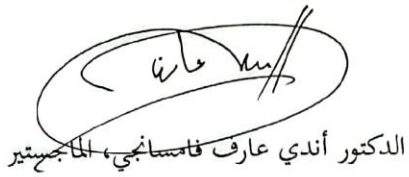 الدكتور أندي عارف فامسانجي، الماجستير